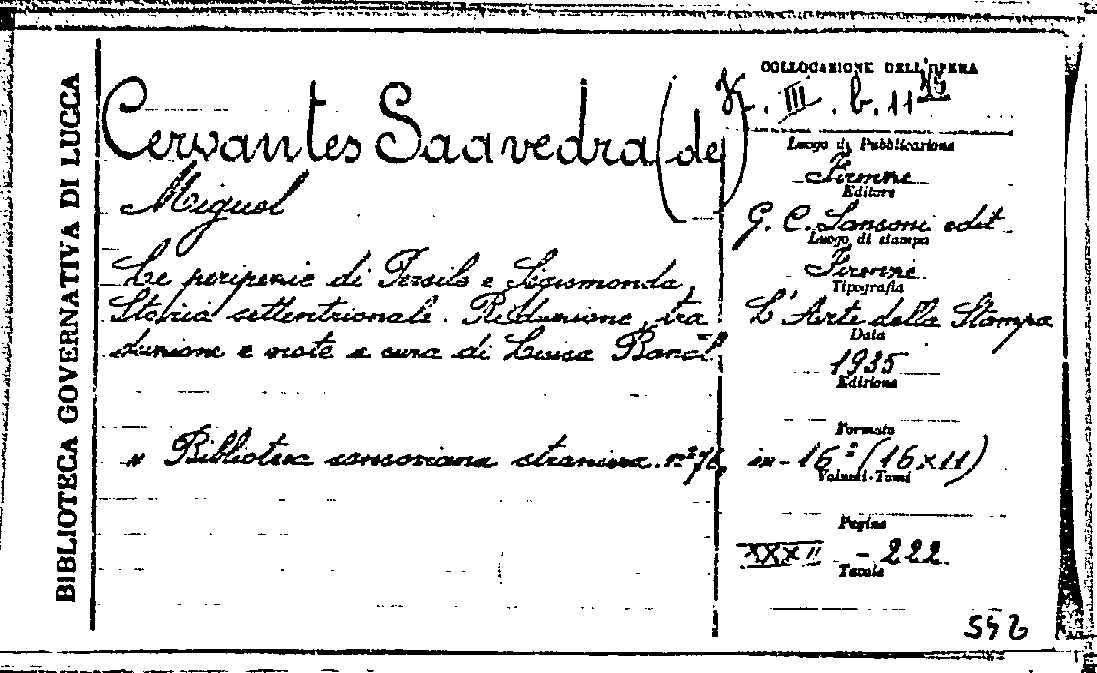 BIBLIOTECA GOVERNATIVA DI LUCCA
Cervantes Saavedra (de)
Miguel
Le peripezie di Persile e Sigismonda,
Storia settentrionale. Riduzione, tra
duzione e note a cura di Luisa
" Biblioteca sansoniana straniera. n° 76
COLLOCAZIONE DELL'OPERA
III. b. 11
Luogo di Pubblicazione
Firenze
Editore
G. C. Sansoni edit.
Luogo di stampa
Firenze
Tipografia
L'Arte della Stampa
Data
1935
Edizione
Formato
in-16° (16x11)
Volumi-Tomi
Pagine
XXXII - 222
Tavole